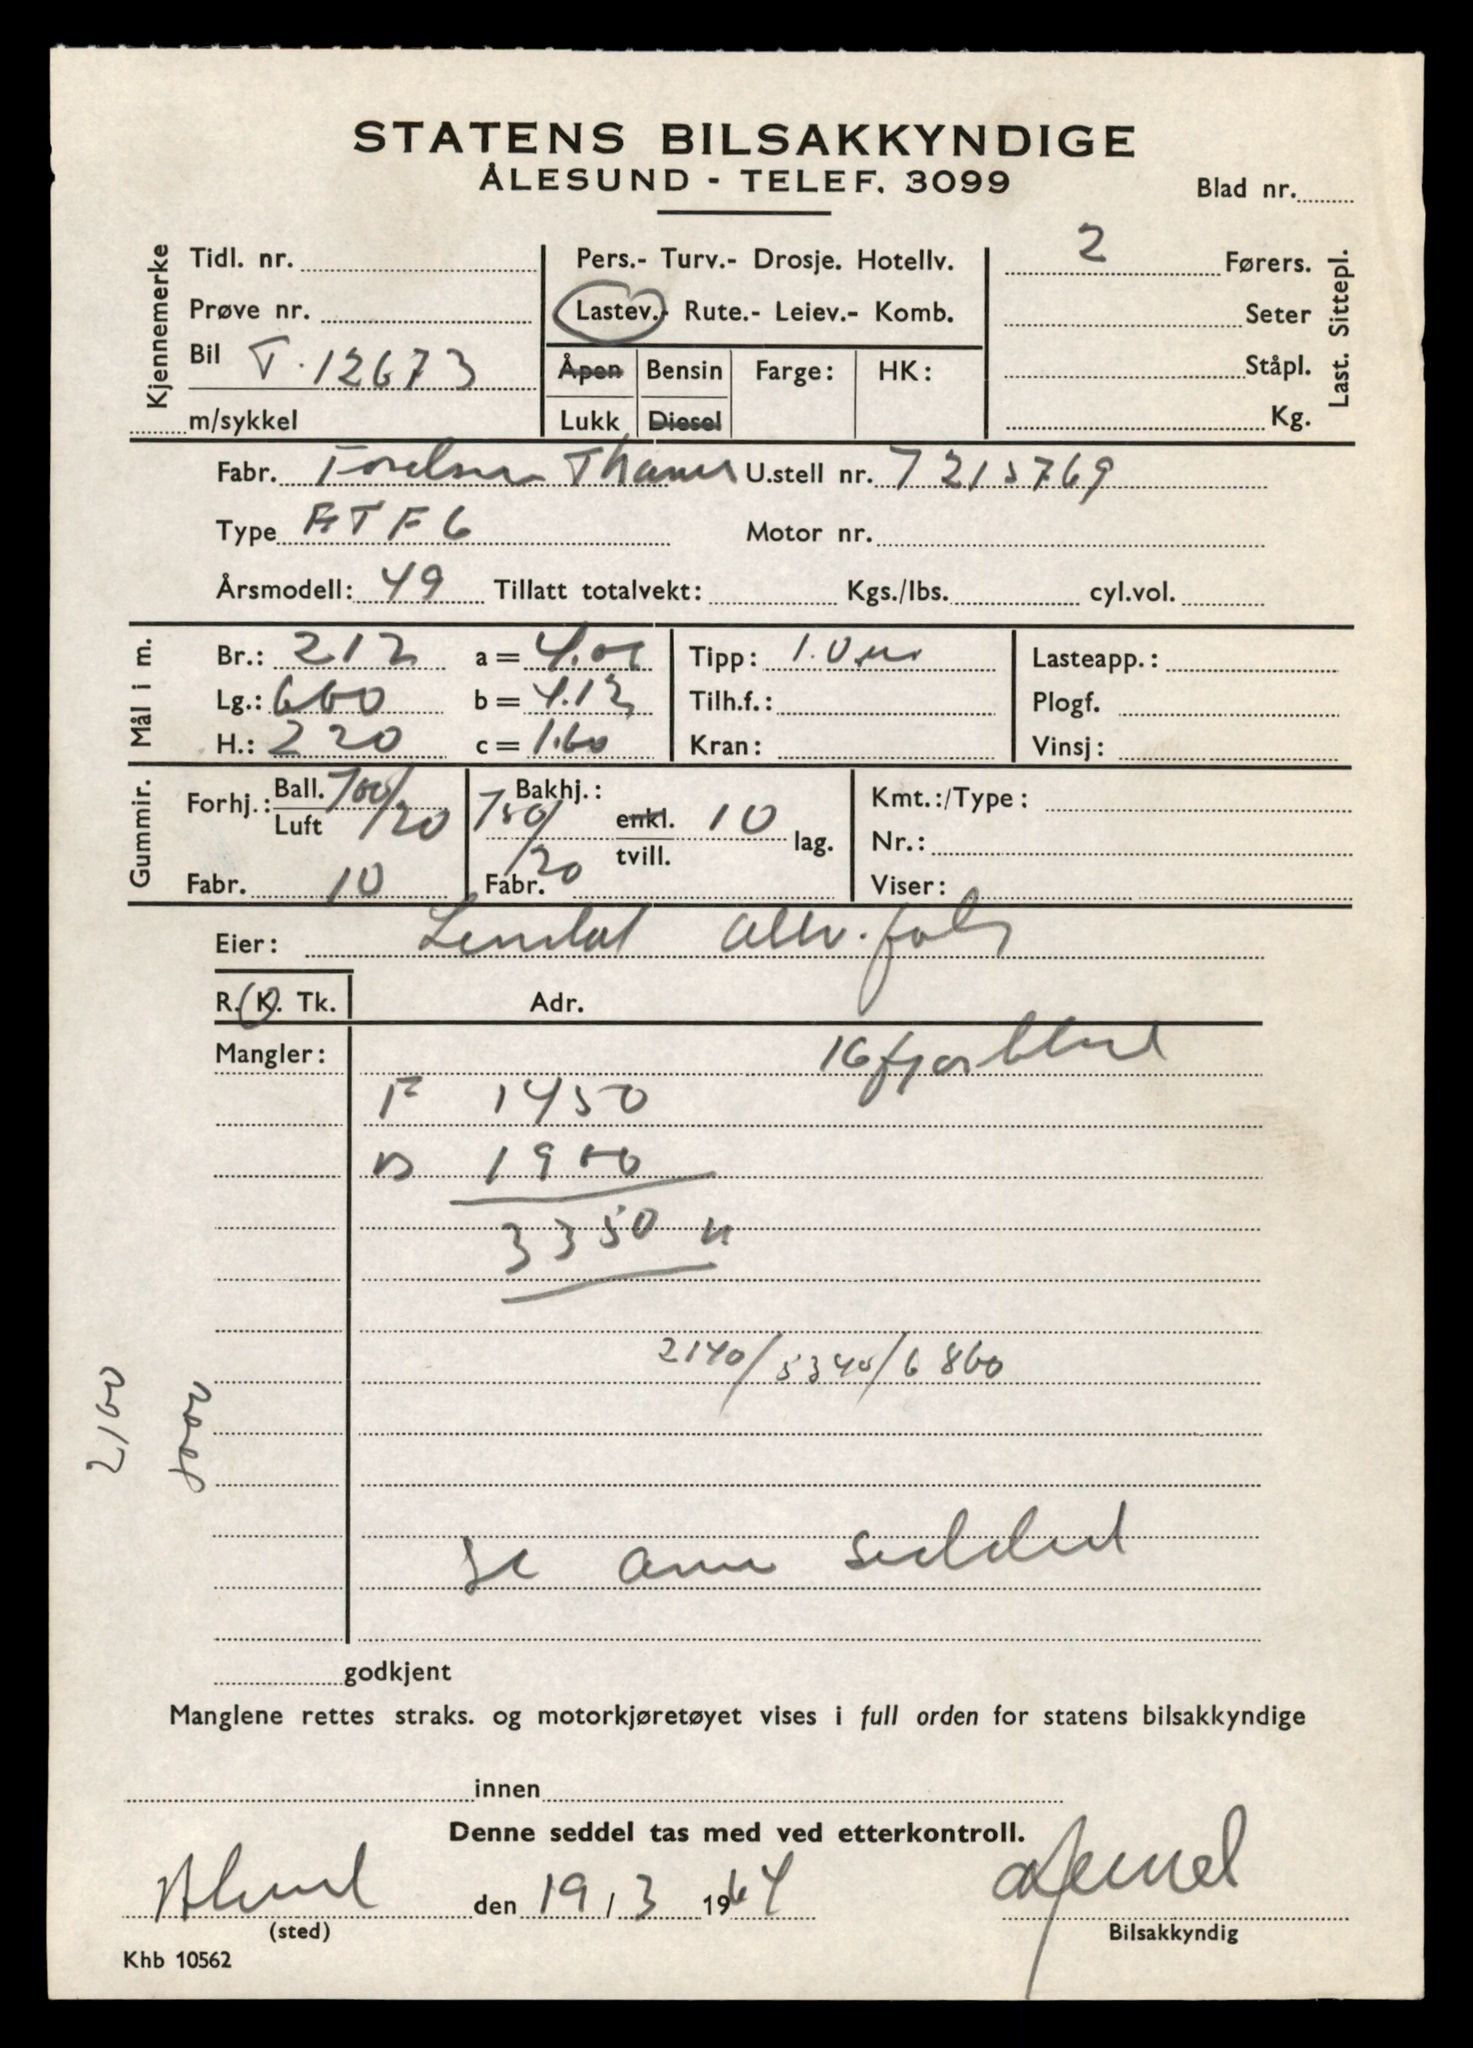 STATENS BILSAKKYNDIGE
ÅLESUND - TELEF. 3099
Blad nr.
Kjennemerke
Tidl. nr.
Prøve nr.
Bil T. 12673
m/sykkel
Pers.- Turv.- Drosje. Hotellv.
Lastev.- Rute.- Leiev.- Komb.
Åpen Bensin Farge: HK:
Lukk Diesel
2 Førers.
Seter
Ståpl.
Kg.
Last. Sittepl.
Fabr. Fordson Thames U.stell nr. 7215769
Type ETF6 Motor nr.
Årsmodell: 49 Tillatt totalvekt: Kgs./lbs. cyl.vol.
Mål i m.
Br.: 212 a = 4.01 Tipp: 1.0 m Lasteapp.:
Lg.: 660 b = 4.12 Tilh.f.: Plogf.
H.: 220 c = 1.60 Kran: Vinsj:
Gummir.
Forhj.: Ball. Luft 700/20
Bakhj.: 750/20 enkl. tvill. 10 lag.
Fabr. 10 Fabr.
Kmt.:/Type:
Nr.:
Viser:
Eier:
R. K. Tk. Adr.
Mangler: 16
F 1450
B 1900
3350
2140/5340/6860
2100
5000
se ann seddel
godkjent
Manglene rettes straks. og motorkjøretøyet vises i full orden for statens bilsakkyndige
innen
Denne seddel tas med ved etterkontroll.
Ålesund den 19/3 1964
(sted) Bilsakkyndig
Khb 10562